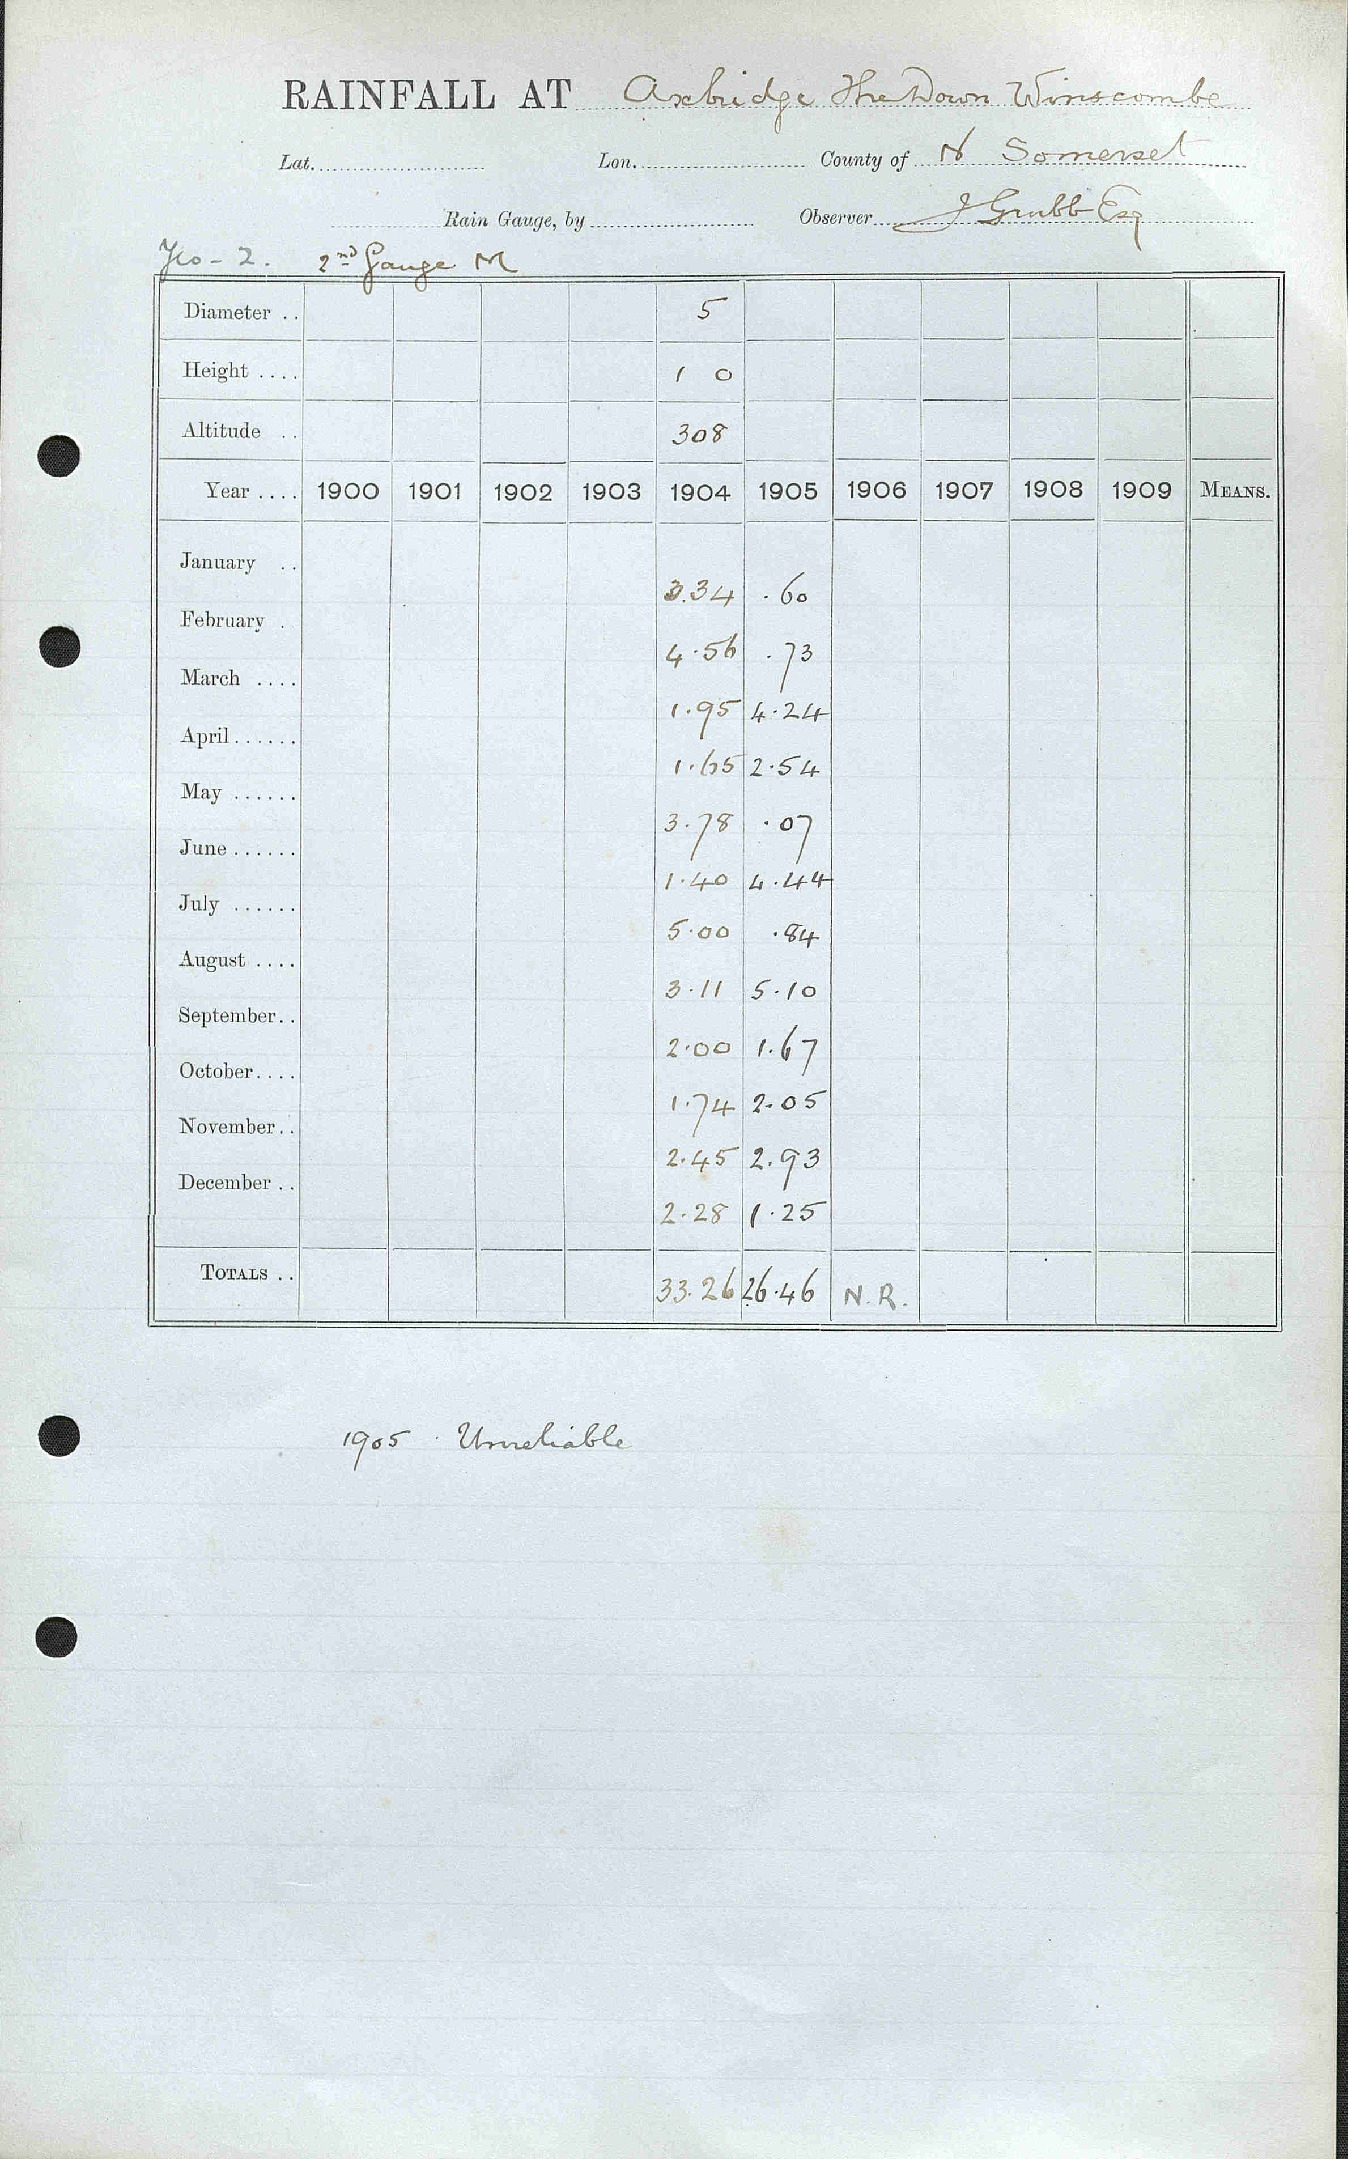 RAINFALL AT Axbridge The Down Winscombe
Lat. Lon. County of N Somerset
Rain Gauge, by Observer J Grubb Esq
Yeo - 2. 2nd Gauge M
Diameter .. 5
Height .... 1 0
Altitude .. 308
Year .... 1900 1901 1902 1903 1904 1905 1906 1907 1908 1909 MEANS.
January .. 3.34 .60
February . 4.56 .73
March .... 1.95 4.24
April...... 1.65 2.54
May ...... 3.78 .07
June...... 1.40 4.44
July ...... 5.00 .84
August .... 3.11 5.10
September.. 2.00 1.67
October.... 1.74 2.05
November.. 2.45 2.93
December .. 2.28 1.25
TOTALS .. 33.26 26.46 N.R.
1905 . Unreliable